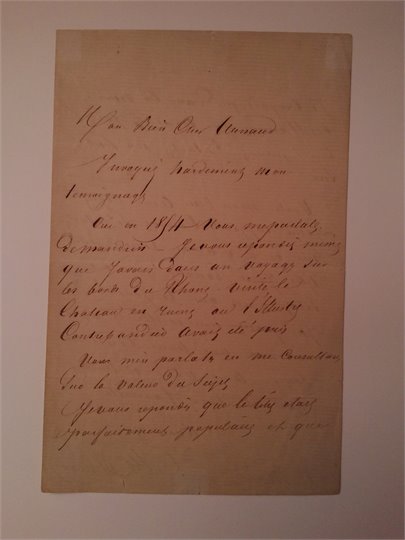 Mon Bien Cher Arnaud
Invoquez hardiment mon
temoignage
Oui en 1854 Vous me parlates
de mandrin – Je vous repondis meme
que j'avais dans un voyage sur
les bords du Rhone visité le
Chateau en ruines ou l'Illustre
Contrebandier avait eté pris.
Vous m'en parlates en me Consultant
sur la valeur du Sujet
Je vous repondis que le titre etait
parfaitement populaire et que